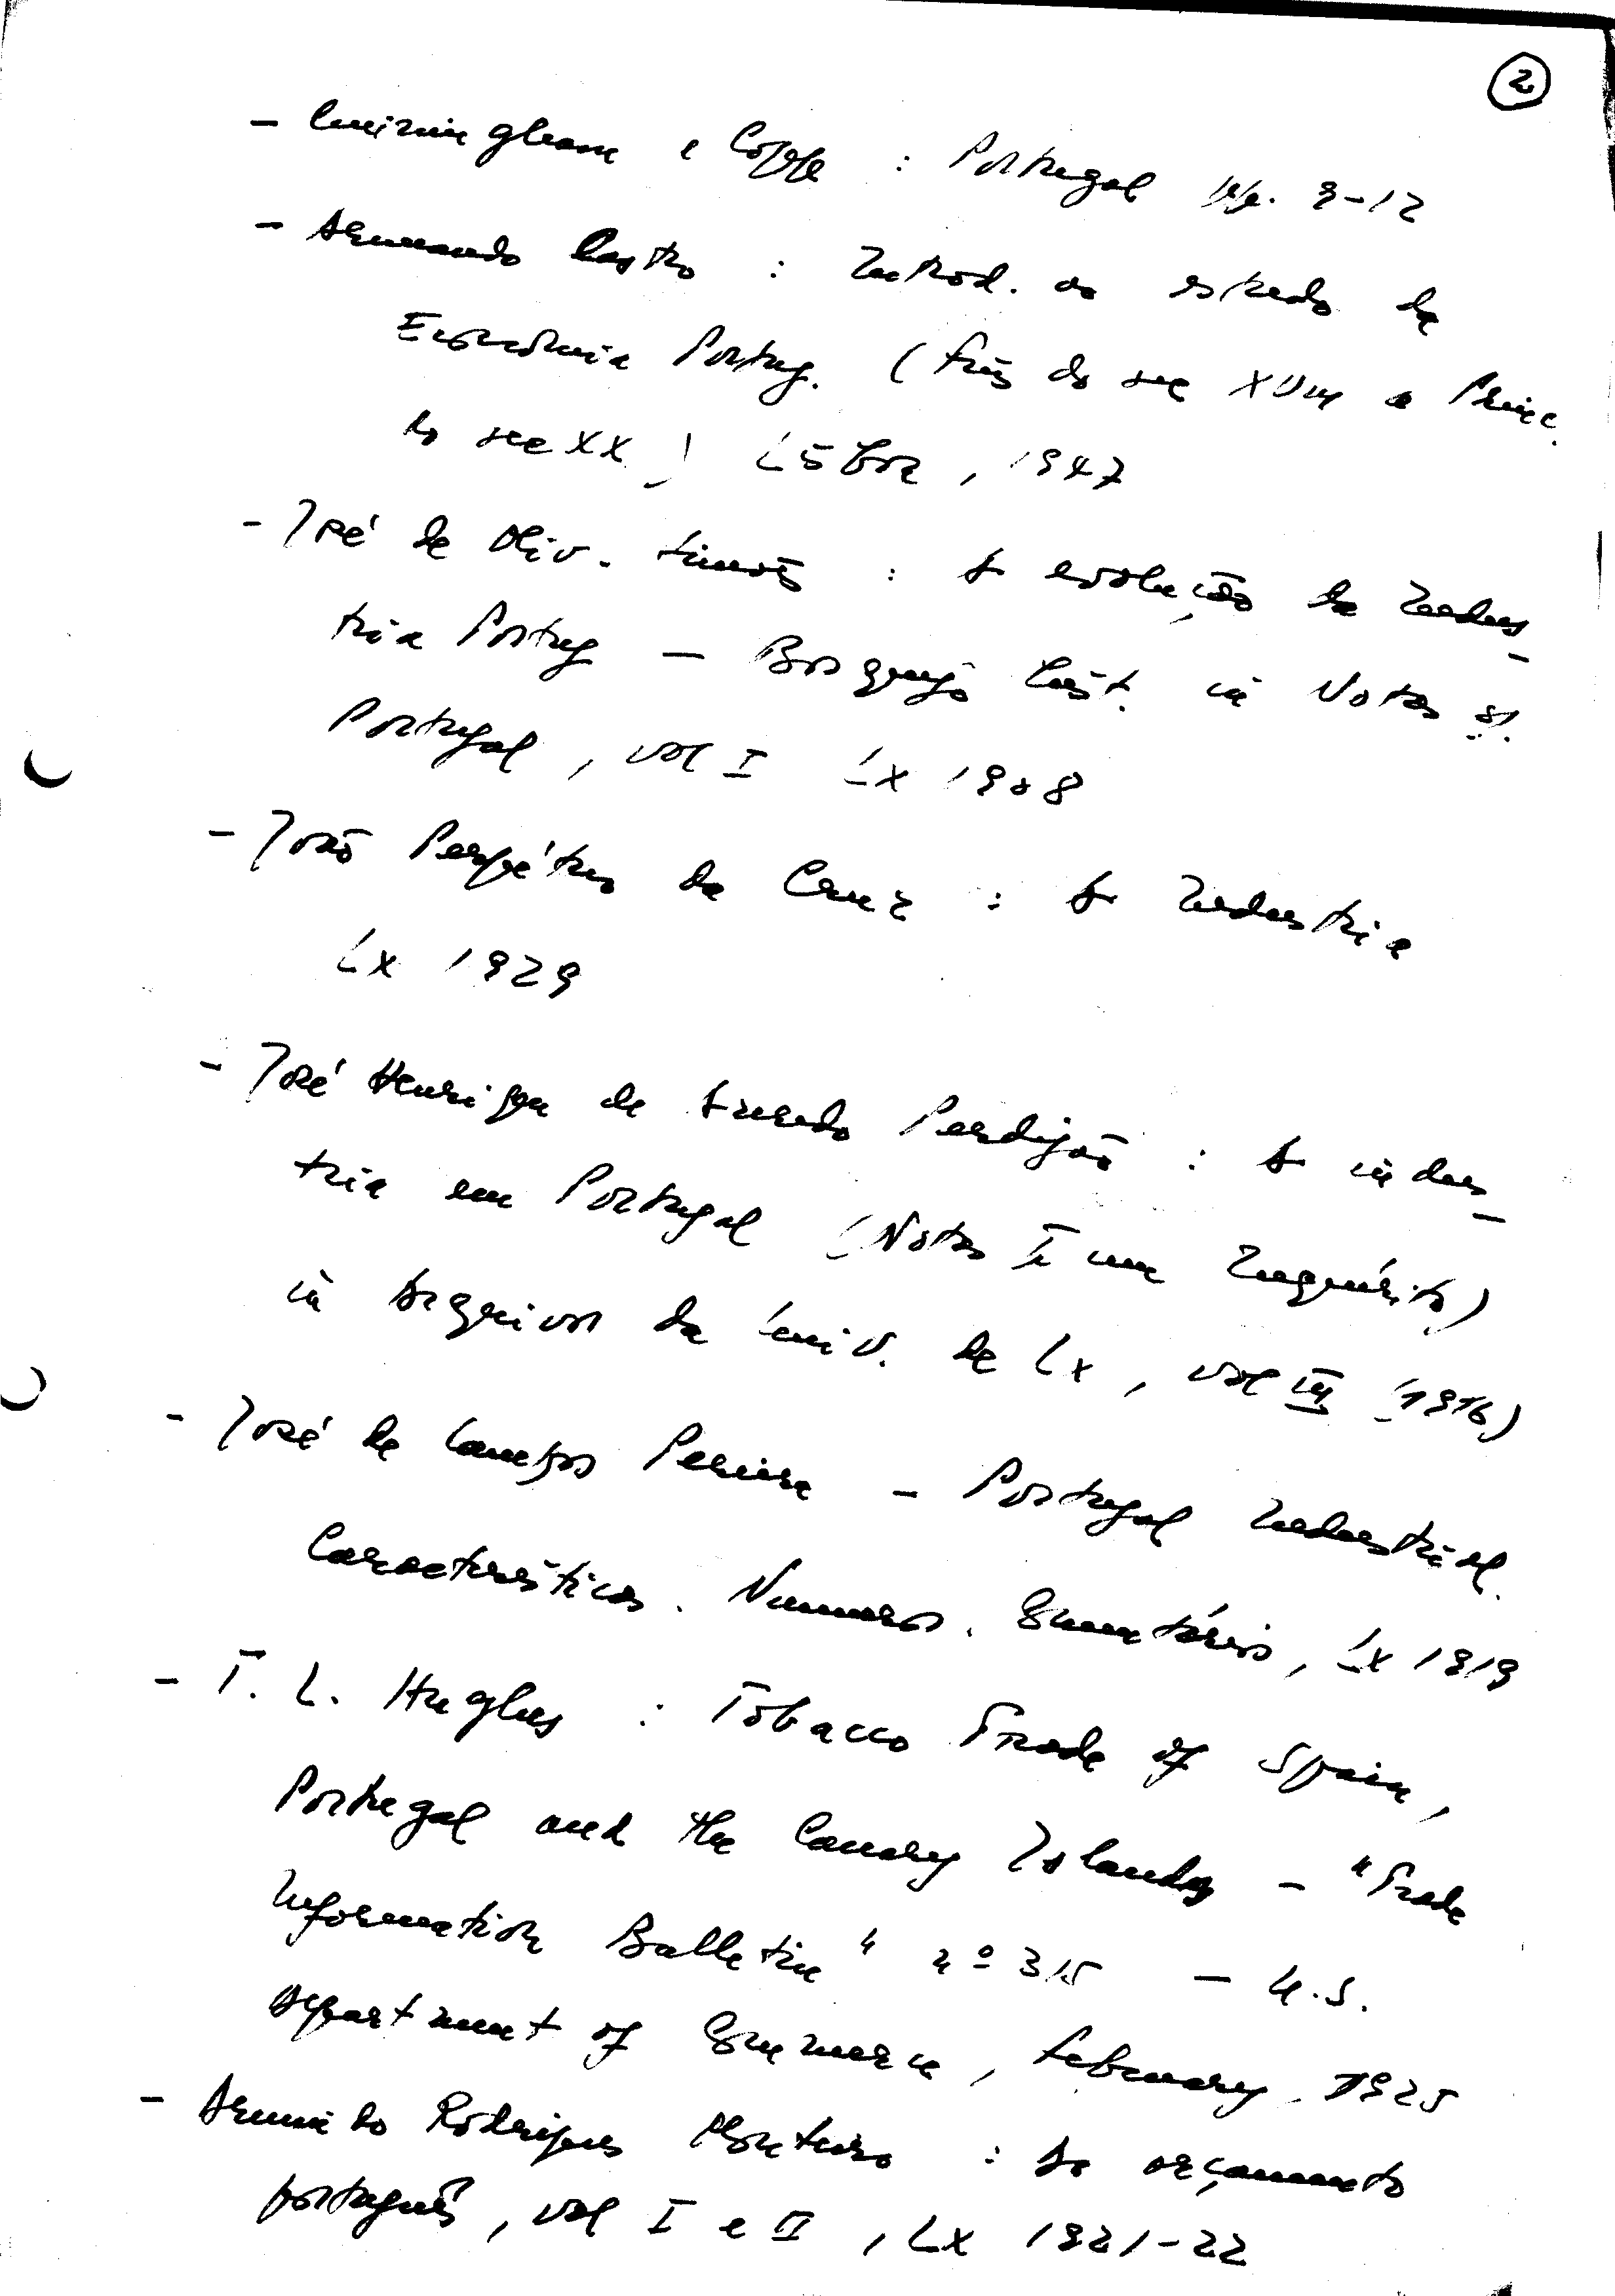 2
- Cunningham e Copp : Portugal pp. 9-12
- Armando Castro : Introd. ao estudo da
Economia Portug. (fins do sec XVIII a Princ.
do sec XX) Lisboa, 1947
- José de Oliv. Simões : A evolução da Indus
tria Portug — Bosquejo hist. in Notas s/.
Portugal, vol I Lx 1908
- João Perpétuo da Cruz : A Industria
Lx 1929
- José Henrique de Azeredo Perdigão : A indus
tria em Portugal (Notas p̄ um Inquérito)
in Arquivos da Univ. de Lx, vol III (1916)
- José de Campos Pereira - Portugal Industrial.
Características. Numeros. Comentários, Lx 1919
- T. L. Hughes : Tobacco Trade of Spain,
Portugal and the Canary Islands - "Trade
Information Bulletin" nº 315 — U.S.
Department of Commerce, February, 1925
- Armindo Rodrigues Monteiro : Do orçamento
português, vol I e II, Lx 1921-22